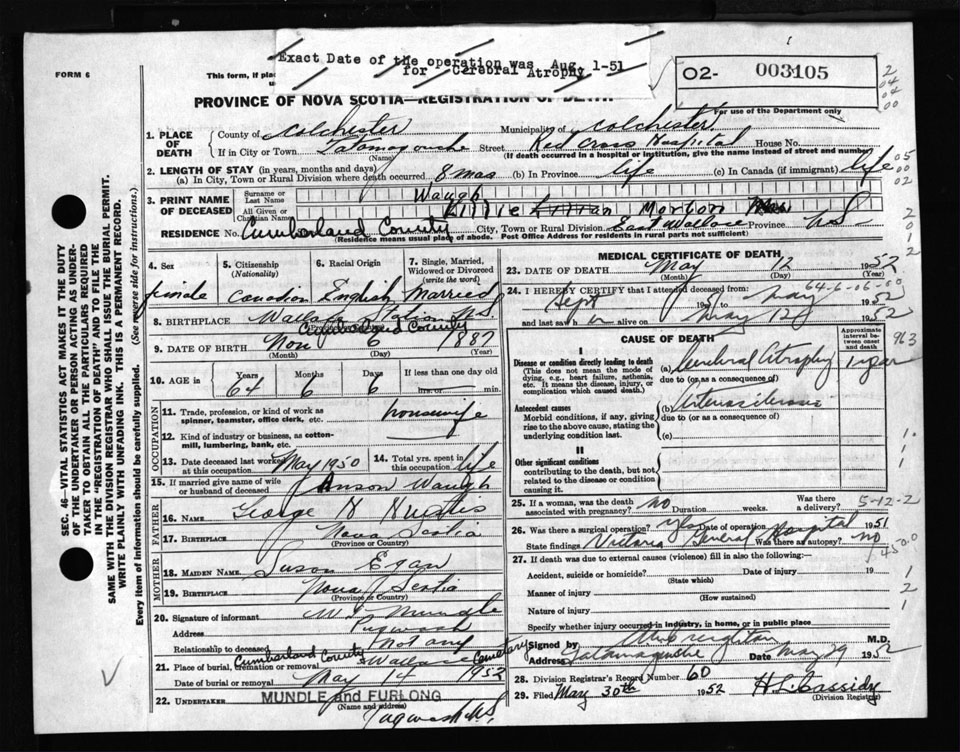 Exact Date of the operation was Aug 1-51
for Cerebral Atrophy
FORM 6
02- 003105
This form, if plac
PROVINCE OF NOVA SCOTIA—REGISTRATION OF DEATH
For use of the Department only
1. PLACE OF DEATH
County of Colchester Municipality of Colchester
If in City or Town Tatamagouche Street Red Cross Hospital House No.
(Name) (If death occurred in a hospital or institution, give the name instead of street and number)
2. LENGTH OF STAY (in years, months and days)
(a) In City, Town or Rural Division where death occurred 8 mos (b) In Province life (c) In Canada (if immigrant) life
3. PRINT NAME OF DECEASED
Surname or Last Name Waugh
All Given or Christian Names Lillie Morton
RESIDENCE No. Cumberland County City, Town or Rural Division East Wallace Province N.S.
(Residence means usual place of abode. Post Office Address for residents in rural parts not sufficient)
4. Sex female
5. Citizenship (Nationality) Canadian
6. Racial Origin English
7. Single, Married, Widowed or Divorced (write the word) Married
8. BIRTHPLACE Wallace N.S.
Cumberland County
9. DATE OF BIRTH Nov 6 1887
(Month) (Day) (Year)
10. AGE in Years 64 Months 6 Days 6 If less than one day old hrs. or min.
OCCUPATION
11. Trade, profession, or kind of work as spinner, teamster, office clerk, etc. housewife
12. Kind of industry or business, as cotton-mill, lumbering, bank, etc.
13. Date deceased last worked at this occupation May 1950
14. Total yrs. spent in this occupation life
15. If married give name of wife or husband of deceased Anson Waugh
FATHER
16. NAME George H
17. BIRTHPLACE Nova Scotia
(Province or Country)
MOTHER
18. MAIDEN NAME Susan Egan
19. BIRTHPLACE Nova Scotia
(Province or Country)
20. Signature of informant Mundle
Address Pugwash
Relationship to deceased Not any
21. Place of burial, cremation or removal Cumberland County Wallace Cemetary
Date of burial or removal May 14 1952
22. UNDERTAKER MUNDLE and FURLONG
(Name and address)
Pugwash N.S.
MEDICAL CERTIFICATE OF DEATH
23. DATE OF DEATH May 12 1952
(Month) (Day) (Year)
64-6-06-00
24. I HEREBY CERTIFY that I attended deceased from:
Sept 1951 to May 1952
and last saw h er alive on May 12 1952
CAUSE OF DEATH
Approximate interval between onset and death
963
I
Disease or condition directly leading to death
(This does not mean the mode of dying, e.g., heart failure, asthenia, etc. It means the disease, injury, or complication which caused death.)
(a) Cerebral Atrophy 1 year
due to (or as a consequence of)
Antecedent causes
Morbid conditions, if any, giving rise to the above cause, stating the underlying condition last.
(b) Arteriosclerosis
due to (or as a consequence of)
(c)
II
Other significant conditions
contributing to the death, but not related to the disease or condition causing it.
25. If a woman, was the death associated with pregnancy? no Duration weeks. Was there a delivery?
5-12-2
26. Was there a surgical operation? yes Date of operation 1951
State findings Victoria General Hospital Was there an autopsy? no
27. If death was due to external causes (violence) fill in also the following:—
Accident, suicide or homicide? Date of injury 19
(State which)
Manner of injury
(How sustained)
Nature of injury
Specify whether injury occurred in industry, in home, or in public place
Signed by Creighton M.D.
Address Tatamagouche Date May 29 1952
28. Division Registrar's Record Number 60
29. Filed May 30th 1952 H. L. Cassidy
(Division Registrar)
SEC. 46—VITAL STATISTICS ACT MAKES IT THE DUTY
OF THE UNDERTAKER OR PERSON ACTING AS UNDER-
TAKER TO OBTAIN ALL THE PARTICULARS REQUIRED
IN THE "REGISTRATION OF DEATH" AND TO FILE THE
SAME WITH THE DIVISION REGISTRAR WHO SHALL ISSUE THE BURIAL PERMIT.
WRITE PLAINLY WITH UNFADING INK. THIS IS A PERMANENT RECORD.
Every item of information should be carefully supplied. (See reverse side for instructions.)